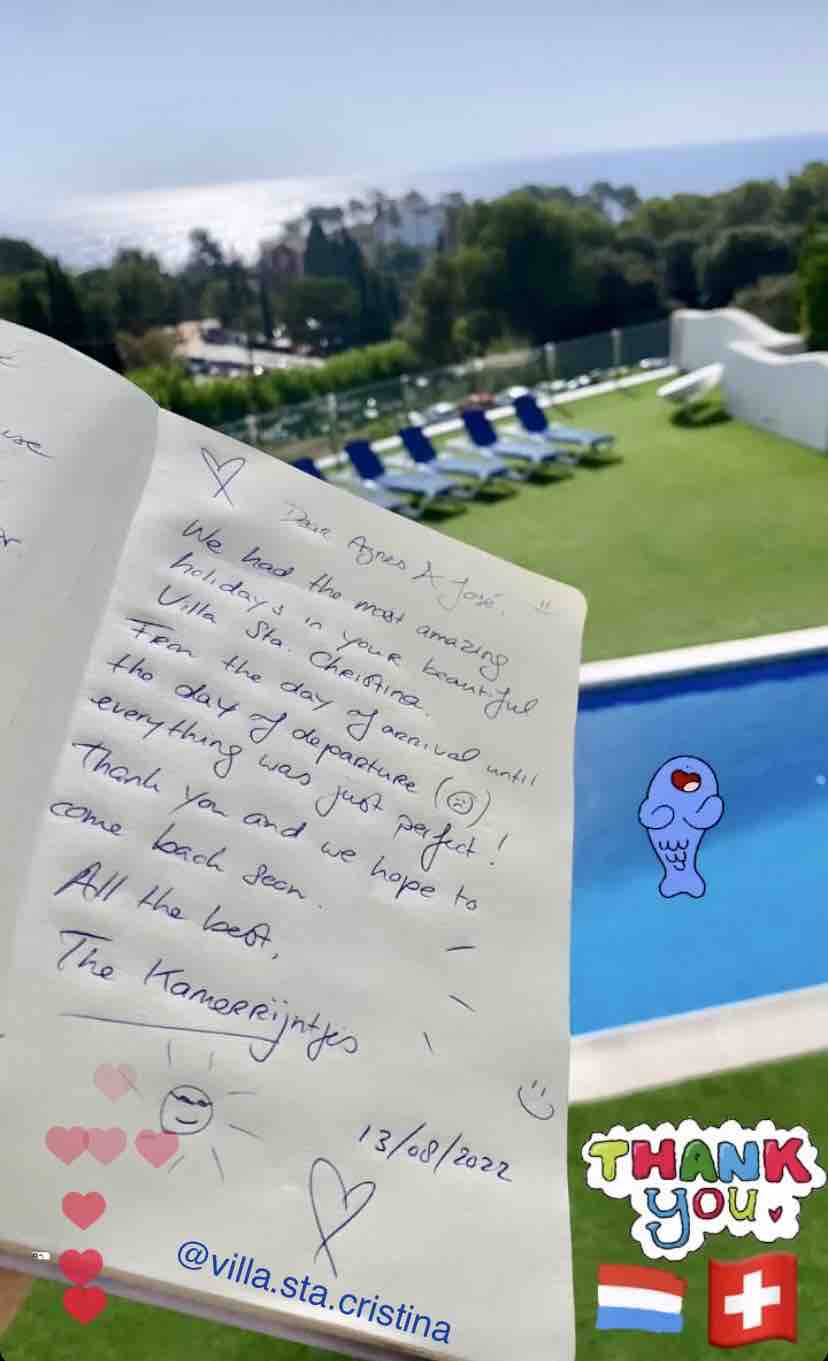 Dear Agnes & José,
We had the most amazing
holidays in your beautiful
Villa Sta. Christina.
From the day of arrival until
the day of departure (☹)
everything was just perfect!
Thank you and we hope to
come back soon.
All the best,
The Kamerrijntjes
13/08/2022
@villa.sta.cristina
THANK
you